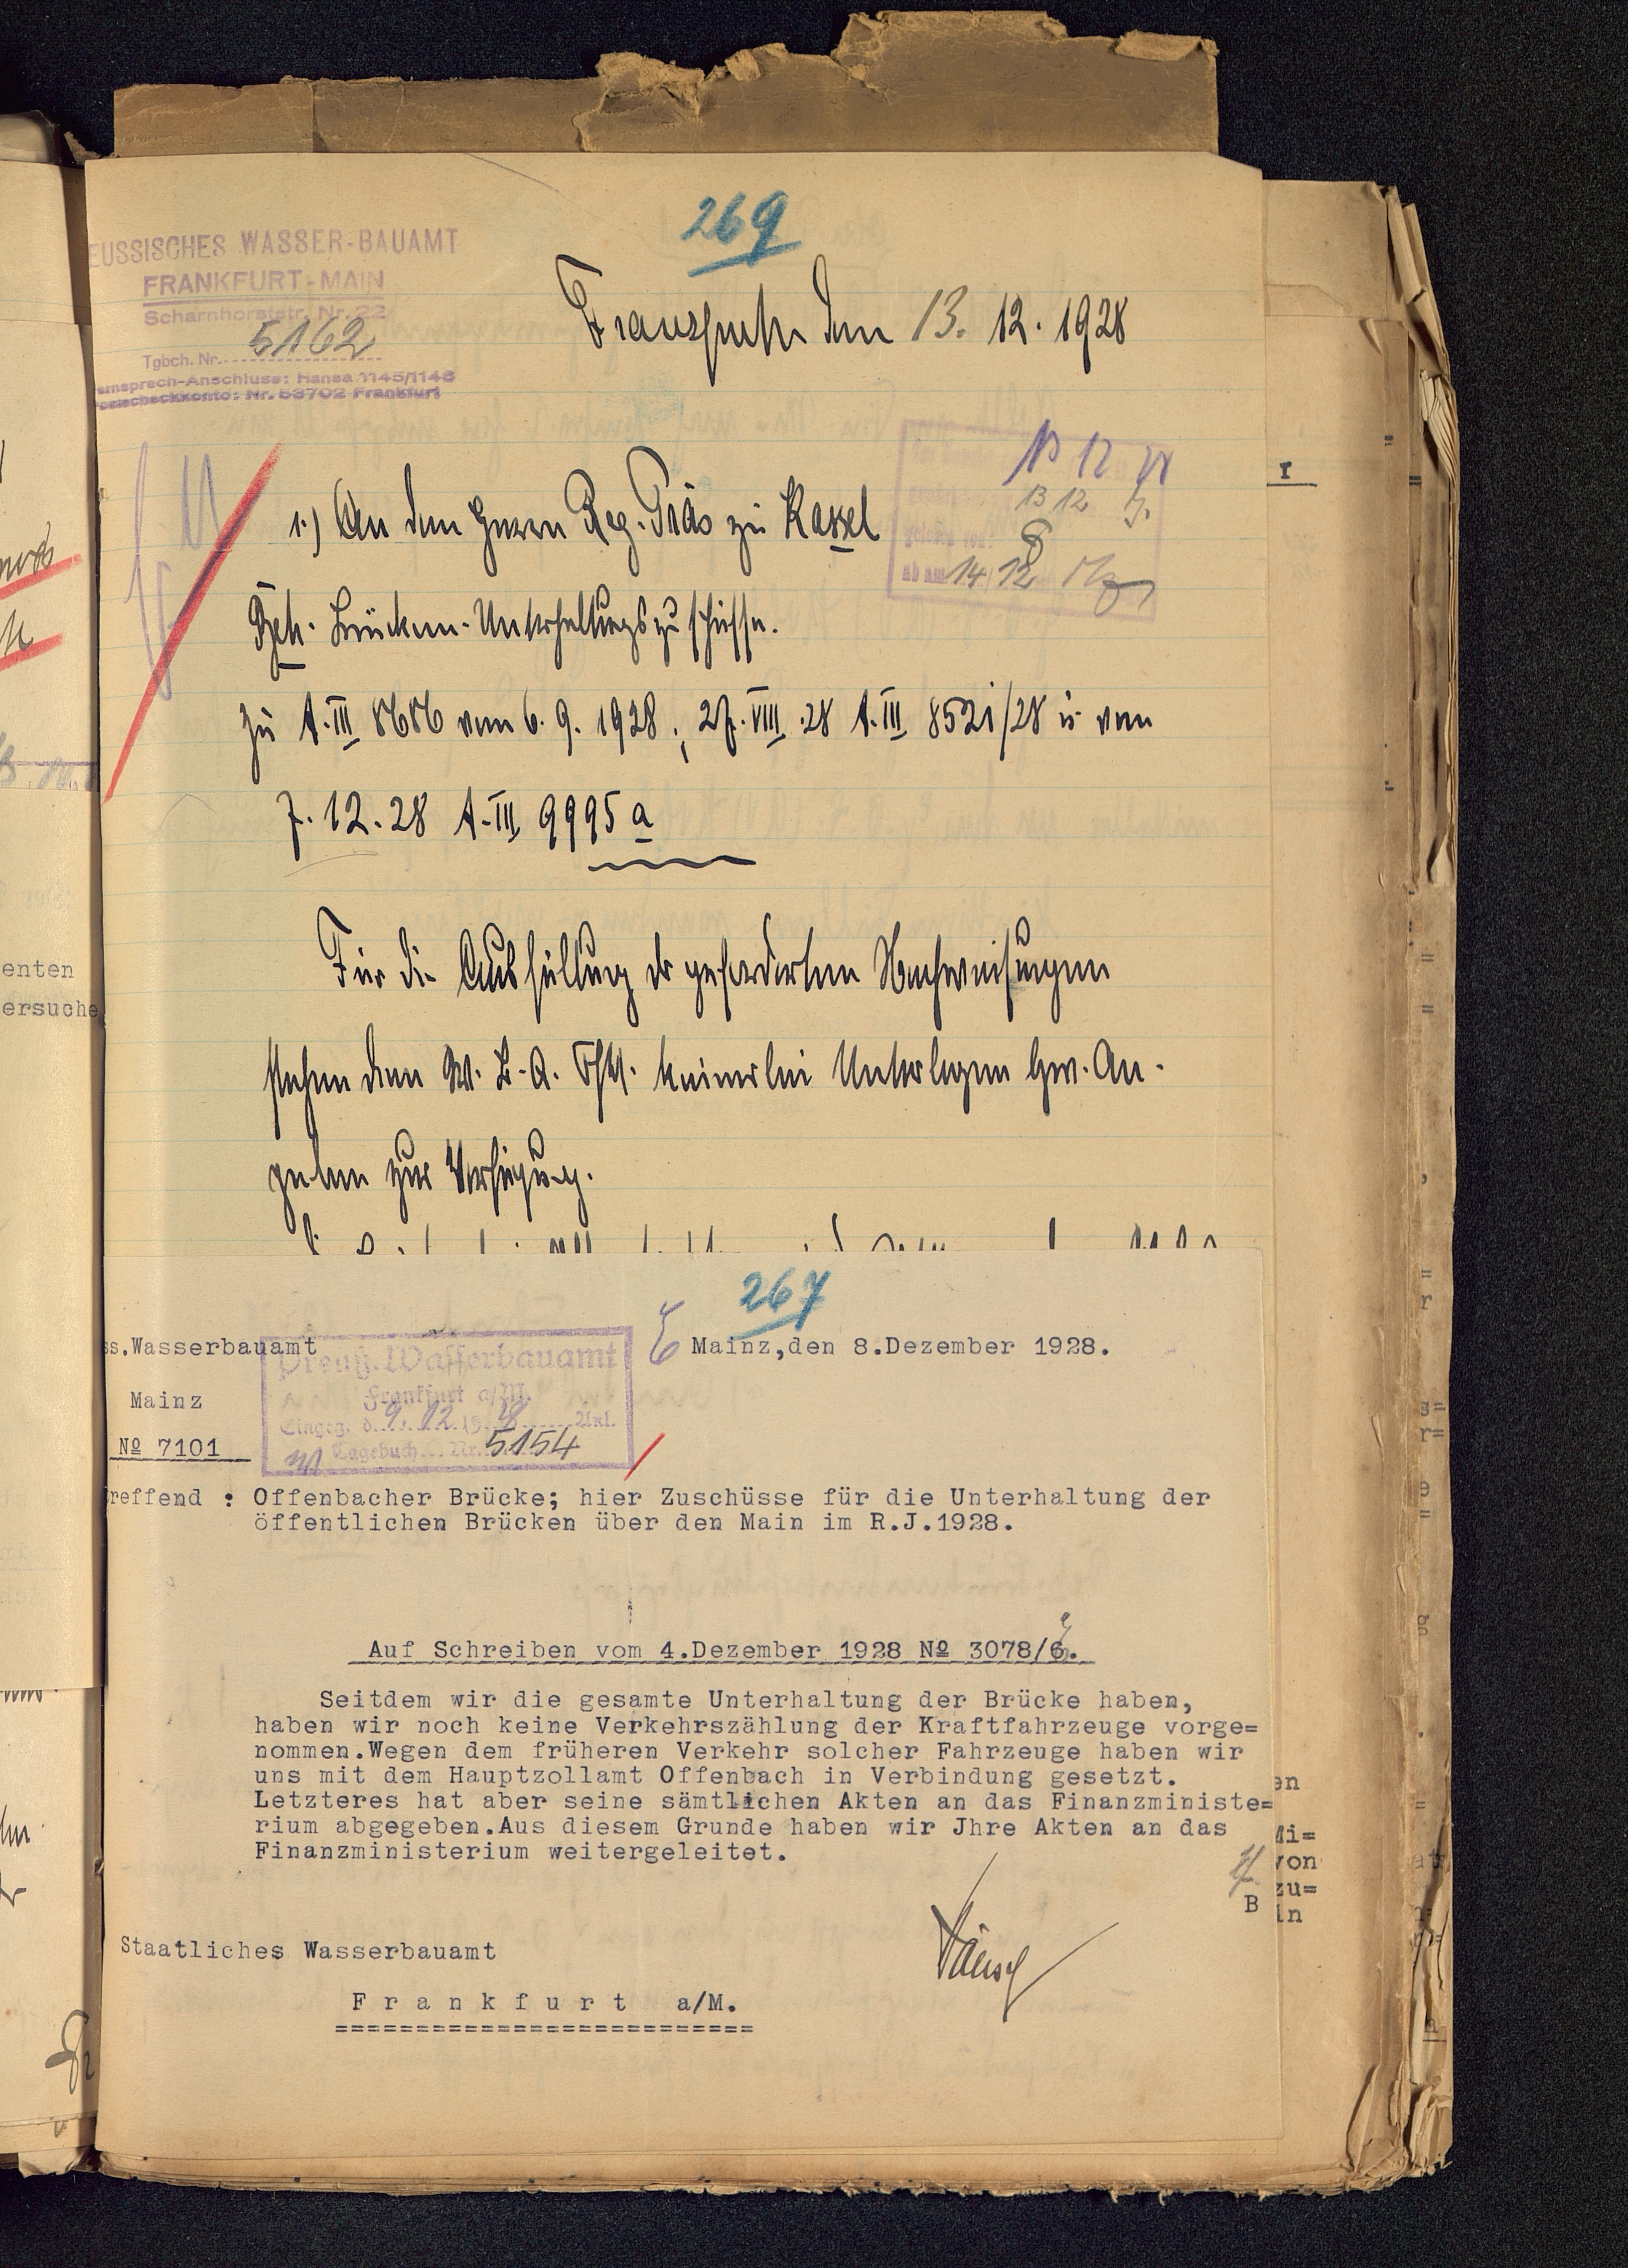 269
EUSSISCHES WASSER-BAUAMT
FRANKFURT-MAIN
Scharnhorststr. Nr. 22
Tgbch. Nr. 5162
ernsprech-Anschluss: Hansa 1145/1146
ostscheckkonto: Nr. 53702 Frankfurt
den 13. 12. 1928
13 12
ab am 14/12
1.) An den Herrn Reg. Präs zu Kassel
Brücken-Unterhaltungszuschüsse.
zu A.III 8686 vom 6. 9. 1928; 27.VIII.28 A.III 8521/28 u. vom
7. 12. 28 A.III 9995a
Für die Ausfüllung der geforderten Nachweisungen
stehen dem W.B.A. Ffm. keinerlei Unterlagen bzw. An-
gaben zur Verfügung.
267
ss.Wasserbauamt
Mainz
Nº 7101
Preuß. Wasserbauamt
Frankfurt a/M.
Eingeg. d. 9. 12. 1928 Anl.
Tagebuch Nr. 5154
Mainz,den 8.Dezember 1928.
reffend : Offenbacher Brücke; hier Zuschüsse für die Unterhaltung der
öffentlichen Brücken über den Main im R.J.1928.
Auf Schreiben vom 4.Dezember 1928 Nº 3078/6.
Seitdem wir die gesamte Unterhaltung der Brücke haben,
haben wir noch keine Verkehrszählung der Kraftfahrzeuge vorge=
nommen.Wegen dem früheren Verkehr solcher Fahrzeuge haben wir
uns mit dem Hauptzollamt Offenbach in Verbindung gesetzt.
Letzteres hat aber seine sämtlichen Akten an das Finanzministe=
rium abgegeben.Aus diesem Grunde haben wir Jhre Akten an das
Finanzministerium weitergeleitet.
B
Staatliches Wasserbauamt
F r a n k f u r t a/M.
==========================
enten
ersuche
en
Mi=
von
zu=
in